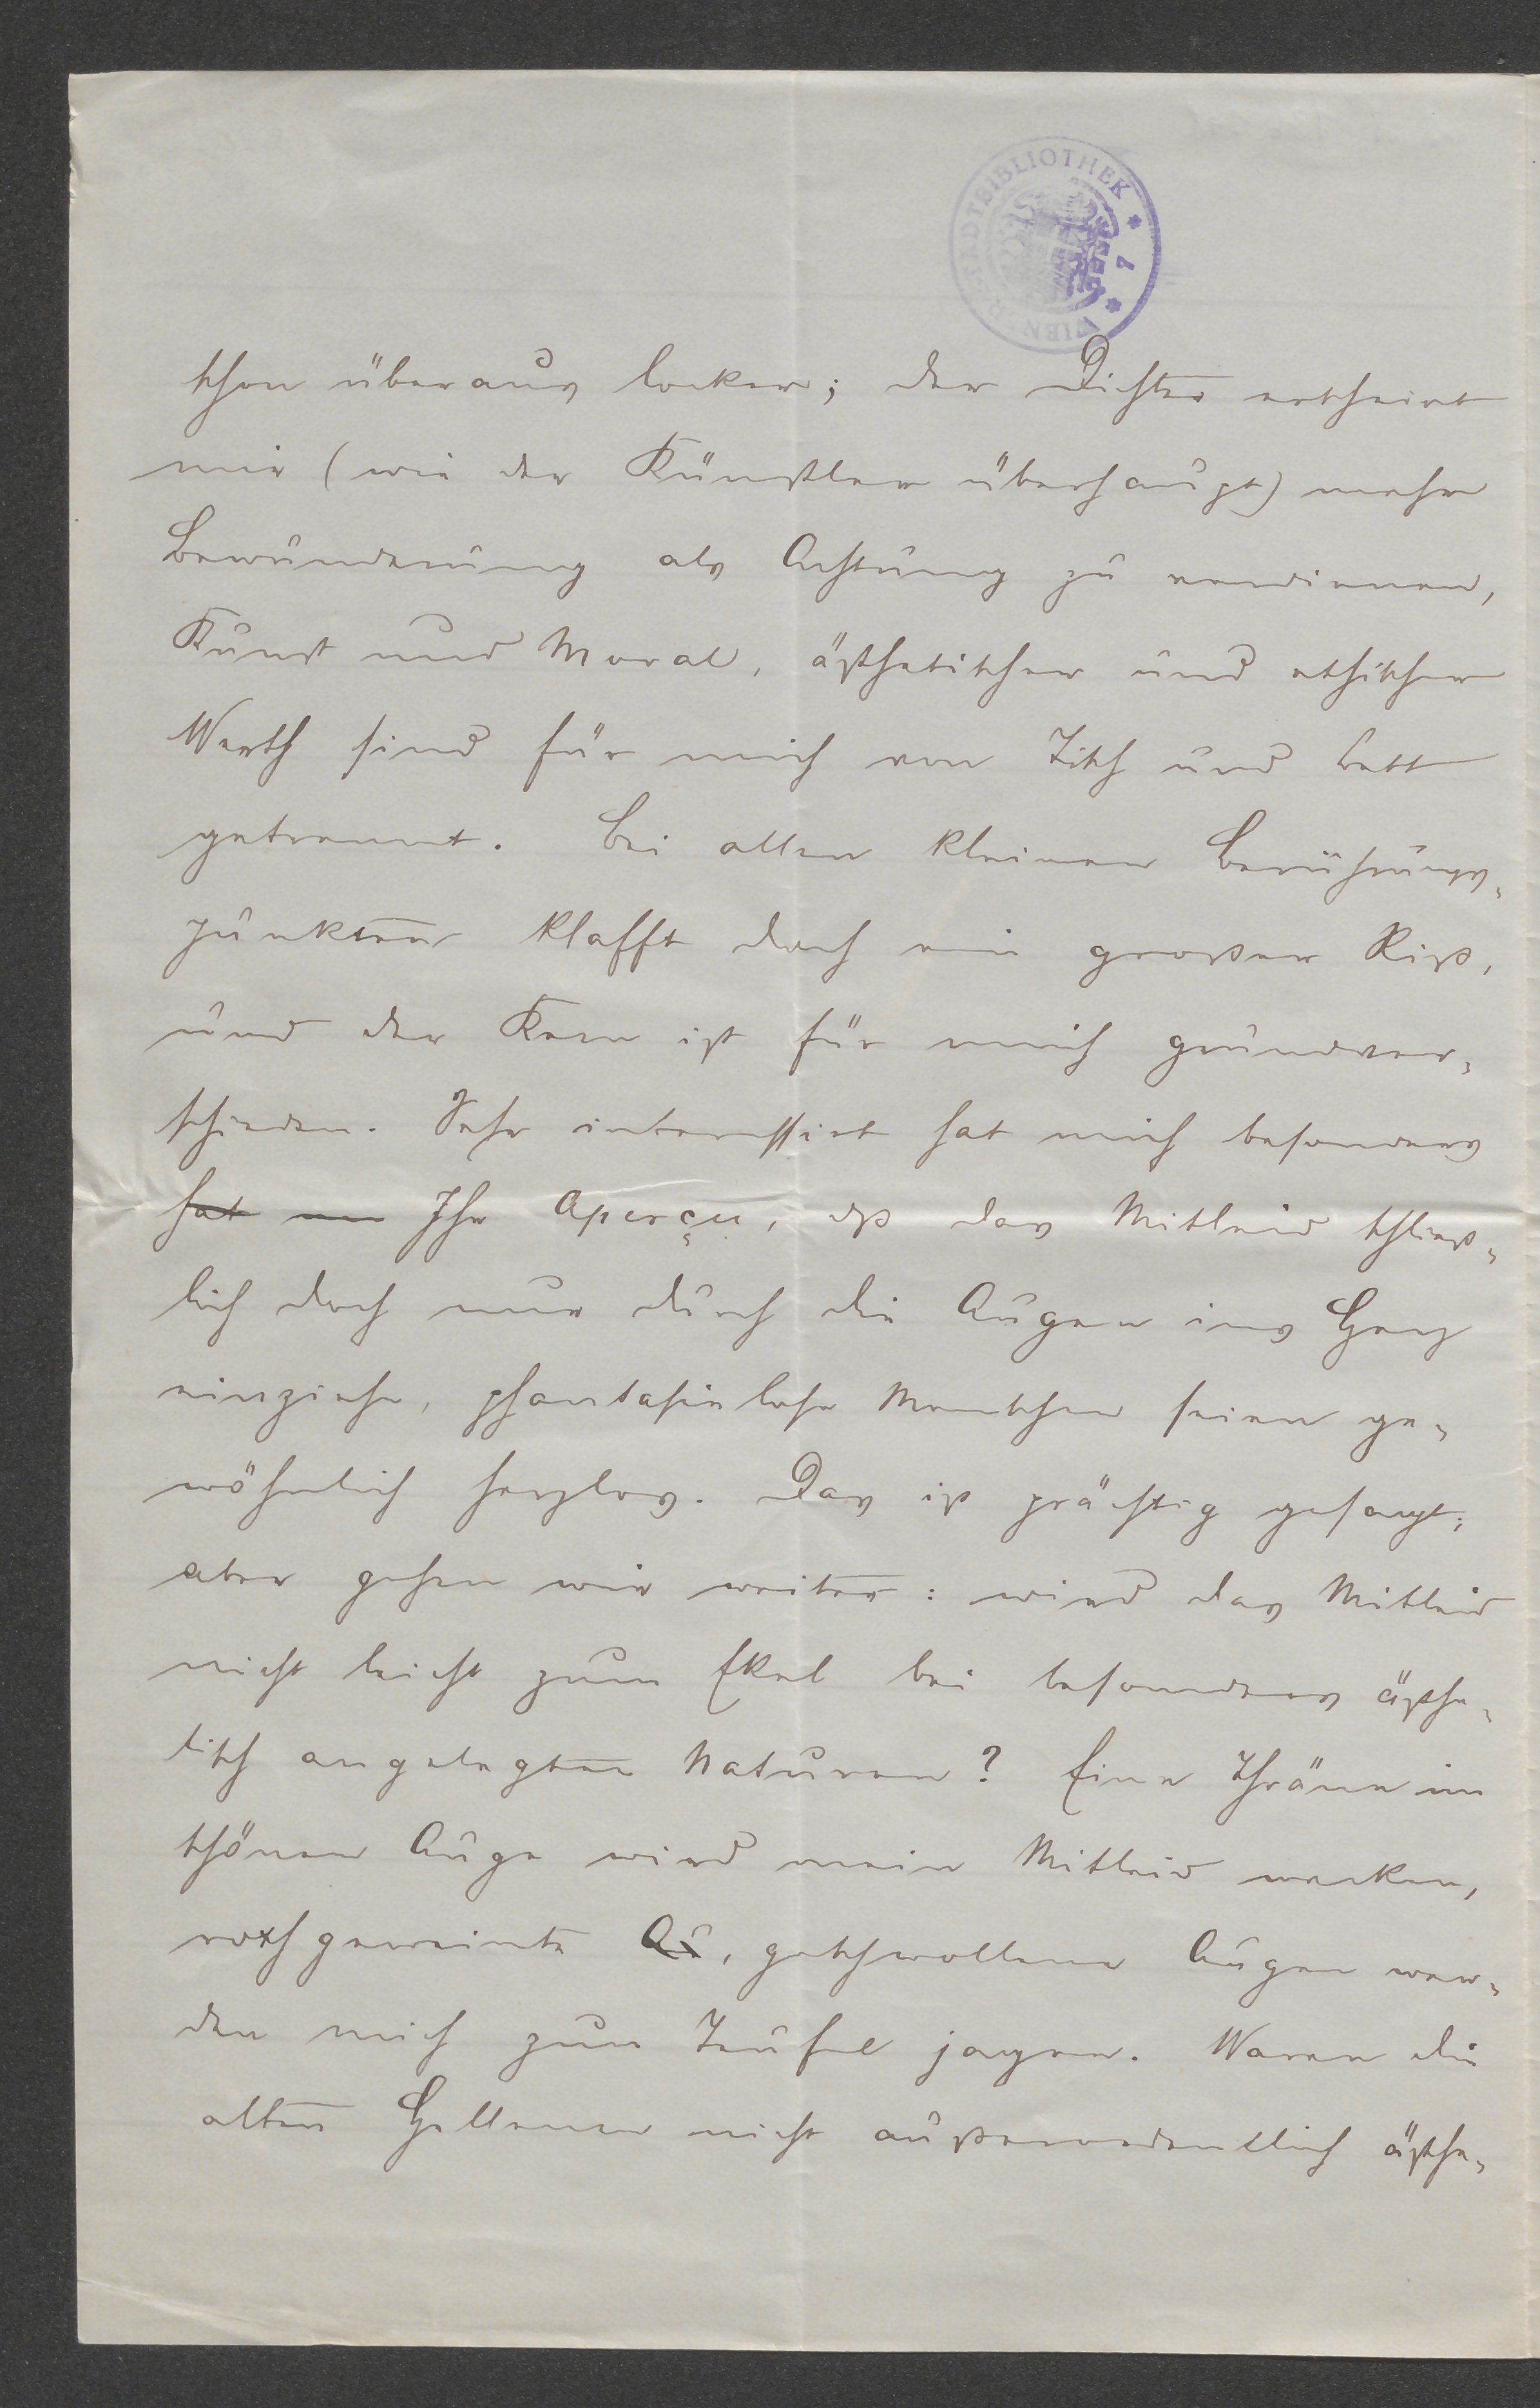 WIENER STADTBIBLIOTHEK * 7 *
schon überaus locker; der Dichter erscheint
mir (wie der Künstler überhaupt) mehr
Bewunderung als Achtung zu verdienen,
Kunst und Moral, ästhetischer und ethischer
Werth sind für mich von Tisch und Bett
getrennt. Bei allen kleinen Berührungs-
punkten klafft doch ein großer Riß,
und der Kern ist für mich grundver-
schieden. Sehr interessirt hat mich besonders
hat Ihr Aperçu, dß das Mitleid schließ-
lich doch nur durch die Augen ins Herz
einziehe, phantasielose Menschen seien ge-
wöhnlich herzlos. Das ist prächtig gesagt;
aber gehen wir weiter: wird das Mitleid
nicht leicht zum Ekel bei besonders ästhe-
tisch angelegten Naturen? Eine Thräne im
schönen Auge wird mein Mitleid wecken,
rothgeweinte Au, geschwollene Augen wer-
den mich zum Teufel jagen. Waren die
alten Hellenen nicht außerordentlich ästhe-